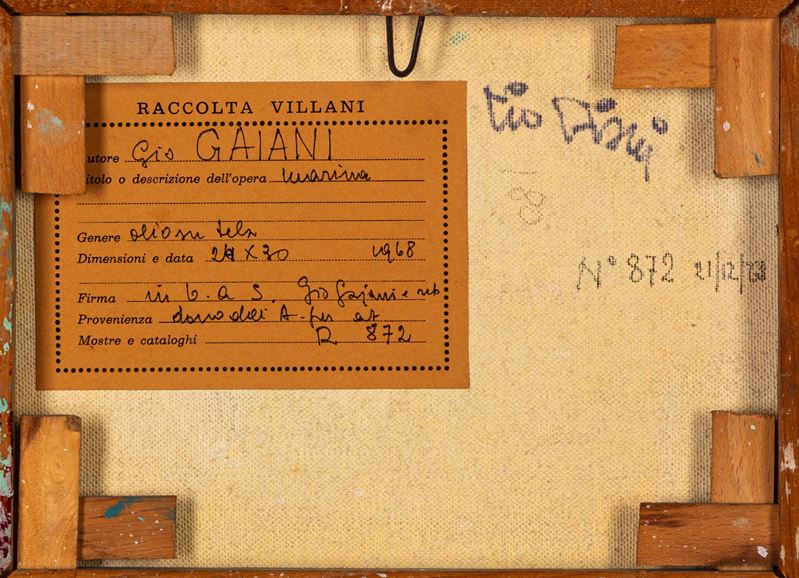 RACCOLTA VILLANI
utore Gio GAIANI
itolo o descrizione dell'opera marina
Genere olio su tela
Dimensioni e data 24 X 30 1968
Firma in b. a s. Gio Gajani e
Provenienza A-
Mostre e cataloghi R 872
80
N° 872 21/12/